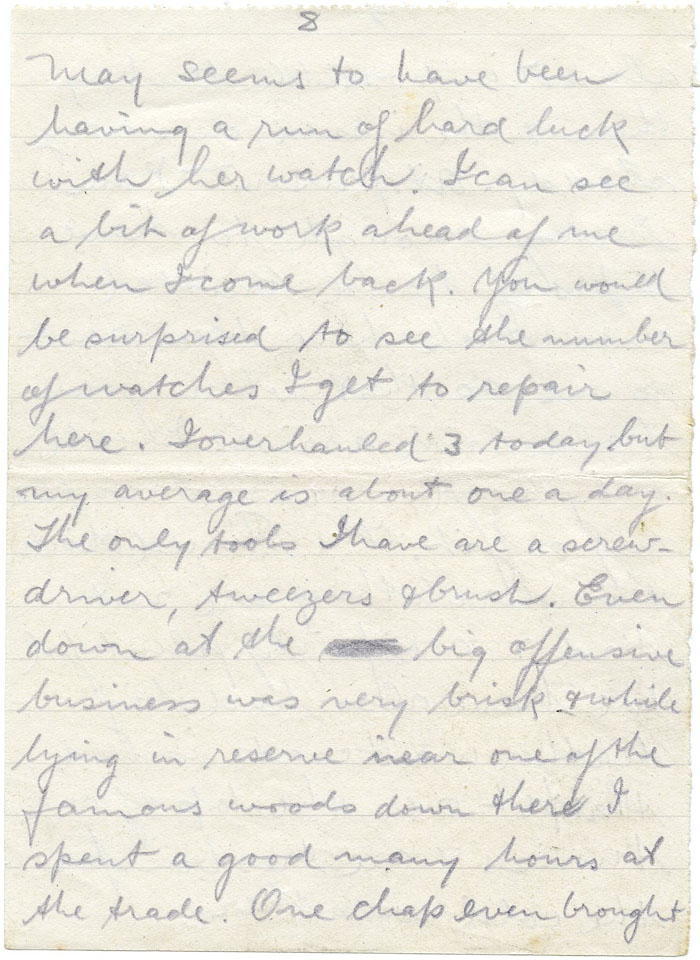 8
May seems to have been
having a run of hard luck
with her watch. I can see
a bit of work ahead of me
when I come back. You would
be surprised to see the number
of watches I get to repair
here. I overhauled 3 today but
my average is about one a day.
The only tools I have are a screw-
driver, tweezers & brush. Even
down at the big offensive
business was very brisk & while
lying in reserve near one of the
famous woods down there I
spent a good many hours at
the trade. One chap even brought